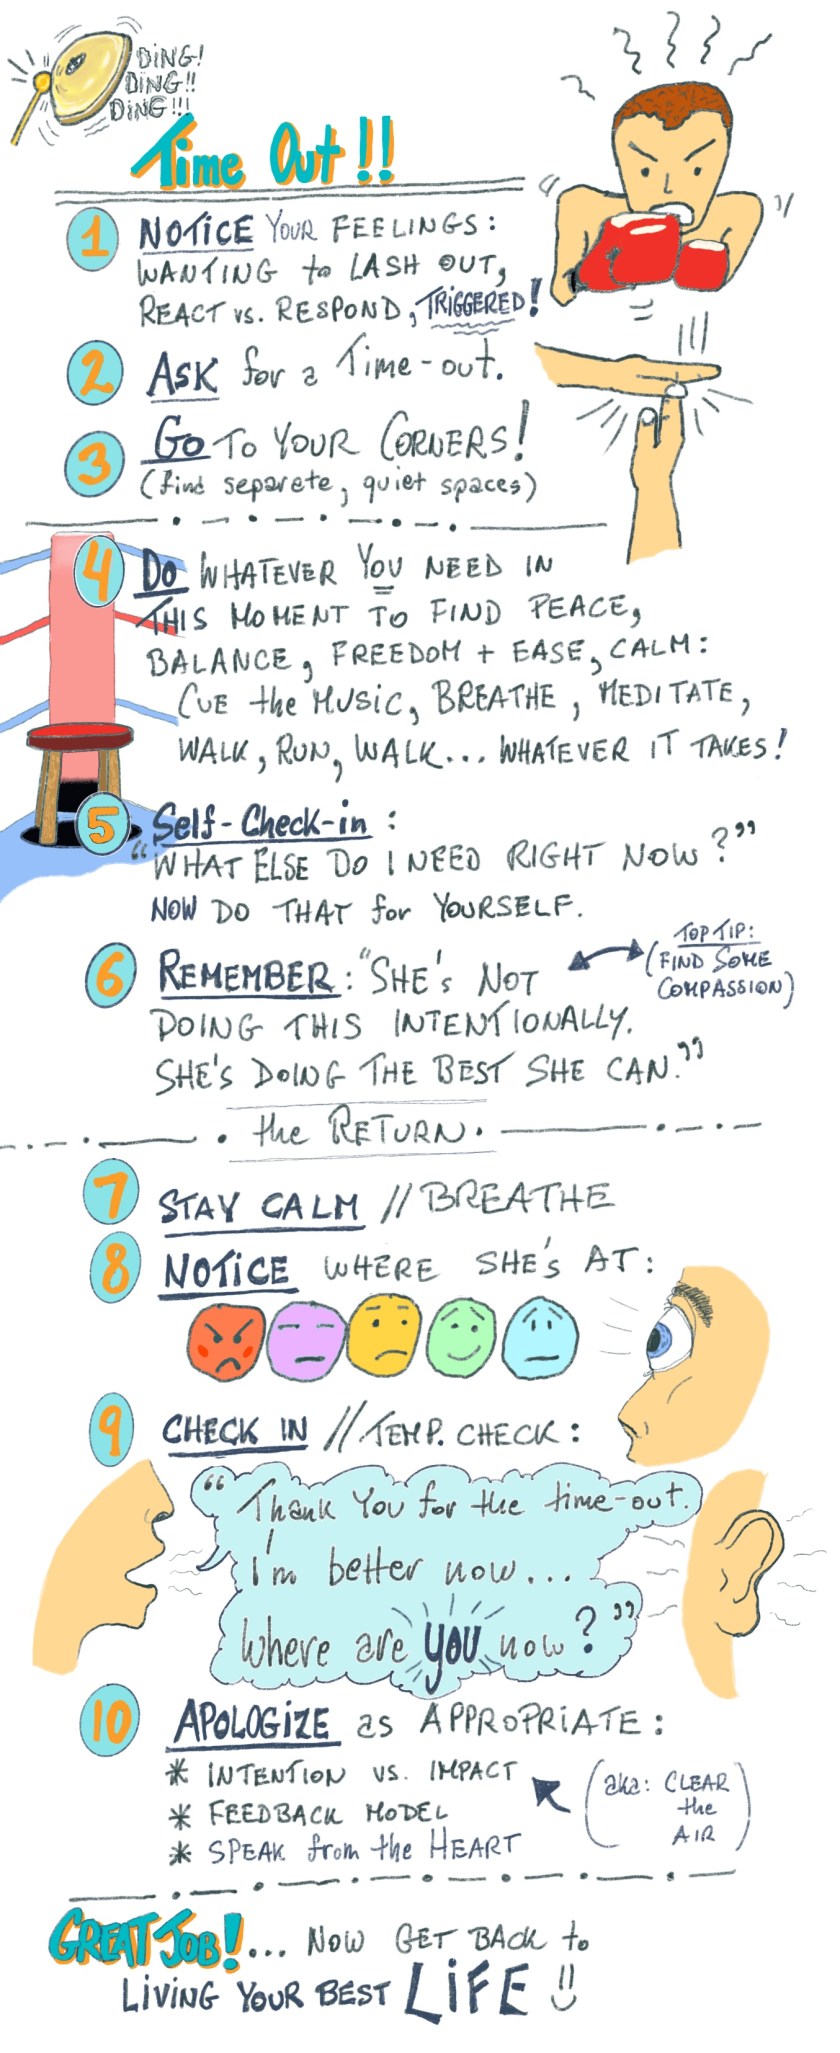 DING!
DING!!
DING!!!
Time Out!!
1 NOTICE YOUR FEELINGS:
WANTING to LASH OUT,
REACT vs. RESPOND, TRIGGERED!
2 ASK for a Time-out.
3 GO TO YOUR CORNERS!
(find separete, quiet spaces)
4 DO WHATEVER YOU NEED IN
THIS MOMENT TO FIND PEACE,
BALANCE, FREEDOM + EASE, CALM:
CUE the MUSIC, BREATHE, MEDITATE,
WALK, RUN, WALK... WHATEVER IT TAKES!
5 Self-Check-in:
"WHAT ELSE DO I NEED RIGHT NOW?"
NOW DO THAT for YOURSELF.
6 REMEMBER: "SHE'S NOT
DOING THIS INTENTIONALLY.
SHE'S DOING THE BEST SHE CAN."
TOP TIP:
(FIND SOME
COMPASSION)
the RETURN.
7 STAY CALM // BREATHE
8 NOTICE WHERE SHE'S AT:
9 CHECK IN // TEMP. CHECK:
"Thank You for the time-out.
I'm better now...
Where are you now?"
10 APOLOGIZE as APPROPRIATE:
* INTENTION VS. IMPACT
* FEEDBACK MODEL
* SPEAK from the HEART
(aka: CLEAR
the
AIR)
GREAT JOB!... NOW GET BACK to
LIVING YOUR BEST LIFE!!